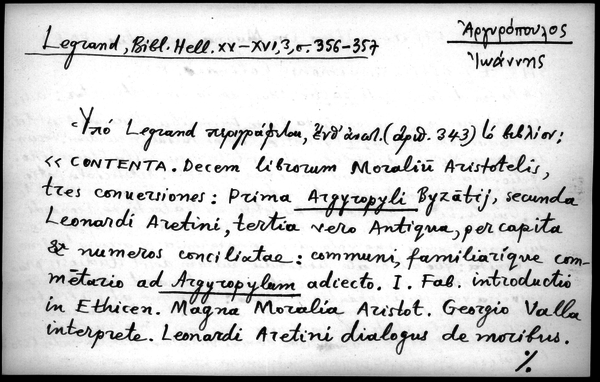 Legrand, Bibl. Hell. XV–XVI, 3, σ. 356–357
Ἀργυρόπουλος
Ἰωάννης
Ὑπό Legrand περιγράφεται, ἔνθ' ἀνωτ. (ἀριθ. 343) τό βιβλίον:
<< CONTENTA. Decem librorum Moraliū Aristotelis,
tres conuersiones: Prima Argyropyli Byzātij, secunda
Leonardi Aretini, tertia vero Antiqua, per capita
& numeros conciliatae: communi, familiariq́ue com-
mētario ad Argyropylum adiecto. I. Fab. introductio
in Ethicen. Magna Moralia Aristot. Georgio Valla
interprete. Leonardi Aretini dialogus de moribus.
./.